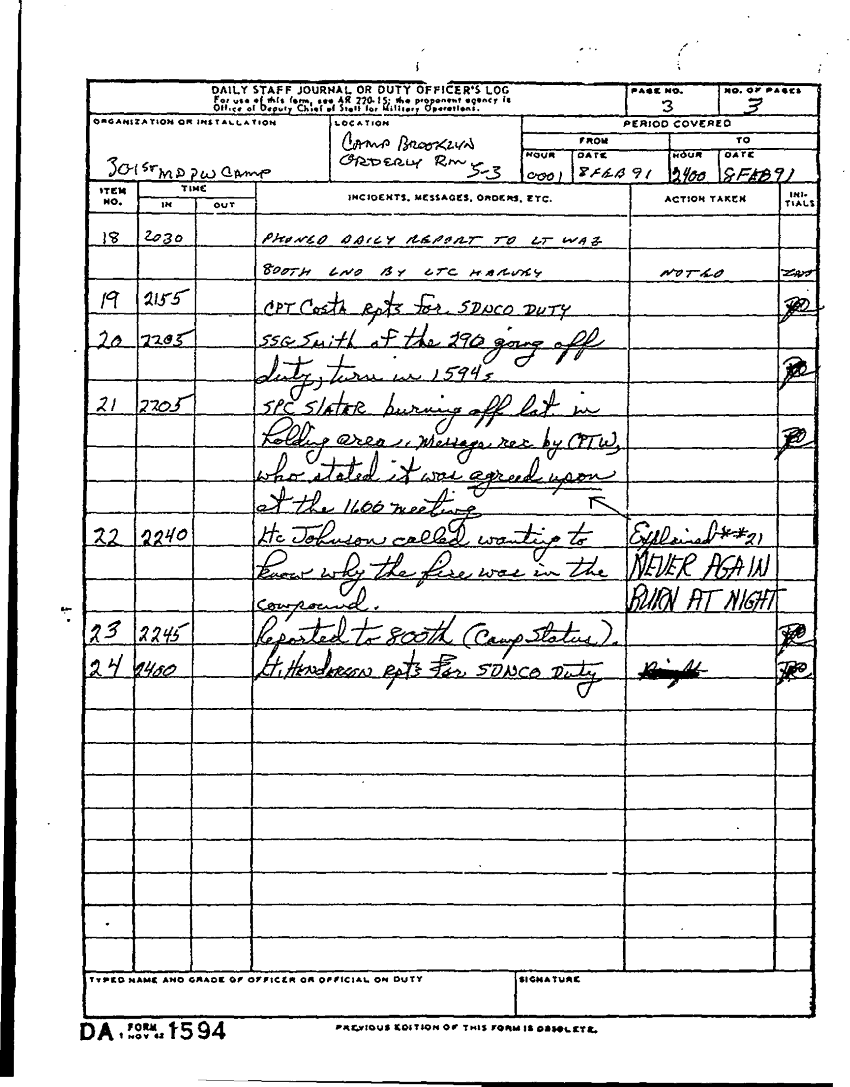 DAILY STAFF JOURNAL OR DUTY OFFICER'S LOG
For use of this form, see AR 220-15; the proponent agency is
Office of Deputy Chief of Staff for Military Operations.
PAGE NO.
3
NO. OF PAGES
3
ORGANIZATION OR INSTALLATION
301ST MD PW CAMP
LOCATION
CAMP BROOKLYN
ORDERLY RM S-3
PERIOD COVERED
FROM
TO
HOUR
DATE
HOUR
DATE
0001
8 FEB 91
2400
8 FEB 91
ITEM NO.
TIME
IN
OUT
INCIDENTS, MESSAGES, ORDERS, ETC.
ACTION TAKEN
INI-TIALS
18 2030 PHONED DAILY REPORT TO LT
800TH LNO BY LTC HARVEY NOTED
19 2155 CPT Costa Rpts for SDNCO DUTY
20 2205 SSG Smith of the 290 going off
duty, turn in 1594s
21 2205 SPC Slater burning off lat in
holding area,, Message rec by CPT W,
who stated it was agreed upon
at the 1600 meeting
22 2240 Ltc Johnson called wanting to Explained **21
know why the fire was in the NEVER AGAIN
compound. BURN AT NIGHT
23 2245 Reported to 800th (Camp Status).
24 2400 Lt. Henderson Rpts For SDNCO Duty
TYPED NAME AND GRADE OF OFFICER OR OFFICIAL ON DUTY
SIGNATURE
DA FORM 1594
1 NOV 62
PREVIOUS EDITION OF THIS FORM IS OBSOLETE.